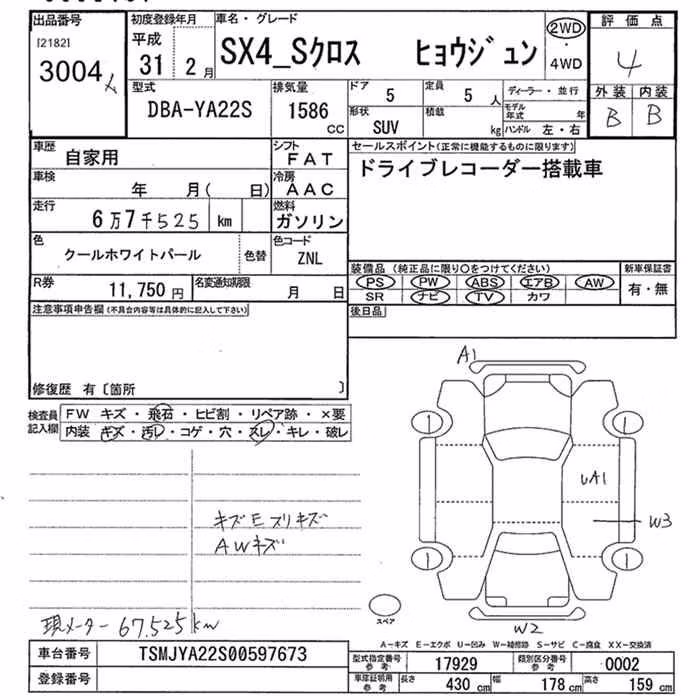 出品番号
[2182]
3004
初度登録年月
平成
31 2月
車名・グレード
SX4_Sクロス ヒョウジュン
2WD
・
4WD
評価点
4
外装 内装
B B
型式
DBA-YA22S
排気量
1586
CC
ドア
5
定員
5 人
形状
SUV
積載
kg
ディーラー・並行
モデル年式 年
ハンドル 左・右
車歴
自家用
シフト
FAT
車検
年 月( 日)
冷房
AAC
走行
6万7千525 km
燃料
ガソリン
色
クールホワイトパール
色替
色コード
ZNL
R券
11,750 円
名変通知期限
月 日
セールスポイント(正常に機能するものに限ります)
ドライブレコーダー搭載車
装備品 (純正品に限り○をつけてください)
PS PW ABS エアB AW
SR ナビ TV カワ
新車保証書
有・無
後日品
注意事項申告欄(不具合内容等は具体的に記入して下さい)
修復歴 有〔箇所 〕
検査員
記入欄
FW キズ・飛石・ヒビ割・リペア跡・×要
内装 キズ・汚レ・コゲ・穴・スレ・キレ・破レ
キズEスリキズ
AWキズ
現メーター 67.525km
A1
1
1
UA1
W3
1
1
スペア
W2
A-キズ E-エクボ U-凹み W-補修跡 S-サビ C-腐食 XX-交換済
車台番号
TSMJYA22S00597673
登録番号
型式指定番号
参考
17929
類別区分番号
参考
0002
車庫証明用
参考
長さ
430 cm
幅
178 cm
高さ
159 cm